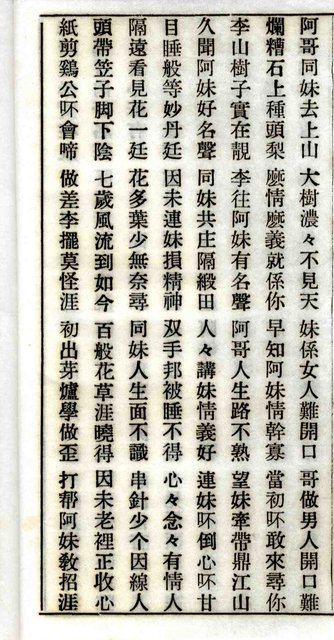 阿哥同妹去上山 大樹濃々不見天 妹係女人難開口 哥做男人開口難
爛糟石上種頭梨 麽情麽義就係你 早知阿妹情幹寡 當初吥敢來尋你
李山樹子實在靚 李往阿妹有名聲 阿哥人生路不熟 望妹牽帶鼎江山
久聞阿妹好名聲 同妹共庄隔緞田 人々講妹情義好 連妹吥倒心吥甘
目睡般等妙丹廷 因未連妹損精神 双手邦被睡不得 心々念々有情人
隔遠看見花一廷 花多葉少無奈尋 同妹人生面不識 串針少个因線人
頭帶笠子脚下陰 七歲風流到如今 百般花草涯曉得 因未老裡正收心
紙剪鷄公吥會啼 做差李擺莫怪涯 初出芽爐學做歪 打帮阿妹教招涯